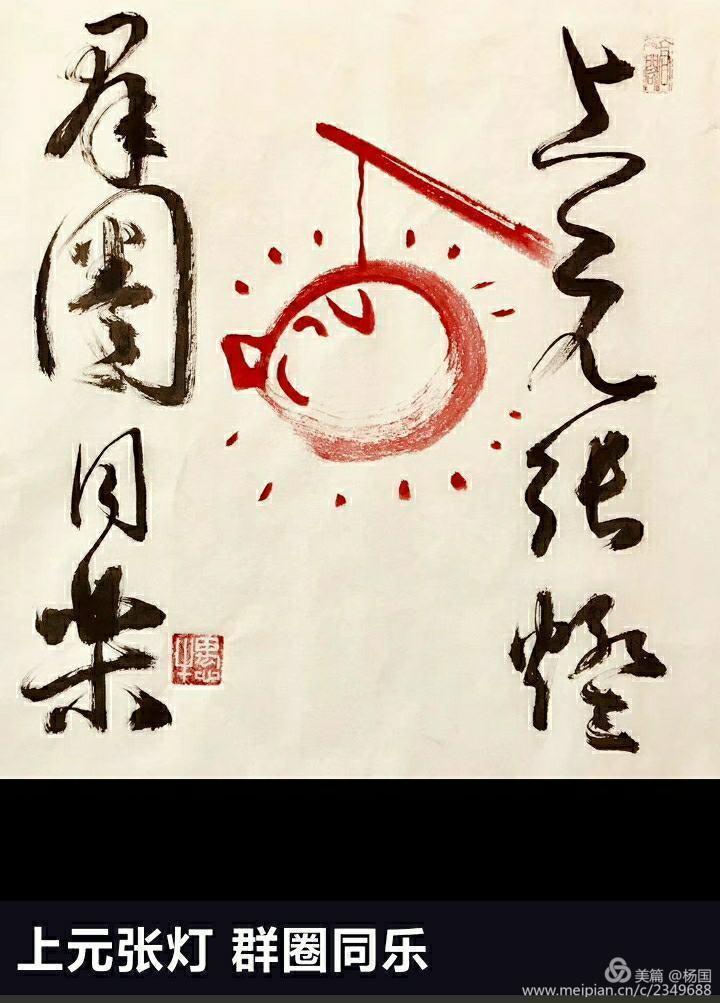 上元张燈
群圈同樂
上元张灯 群圈同乐
美篇 @杨国
www.meipian.cn/c/2349688